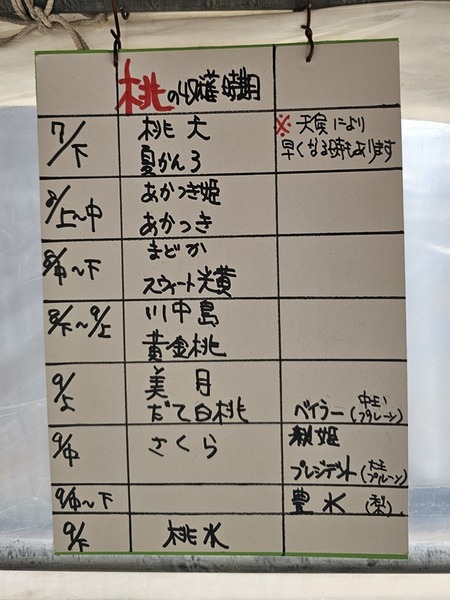 桃の収穫時期
7/下
桃大
夏かんろ
※天候により
早くなる時もあります
8/上~中
あかつき姫
あかつき
8/中~下
まどか
スウィート光黄
8/下~9/上
川中島
黄金桃
9/上
美月
だて白桃
ベイラー(中玉プルーン)
9/中
さくら
秋姫
プレジデント(大玉プルーン)
9/中~下
豊水(梨)
9/下
桃水